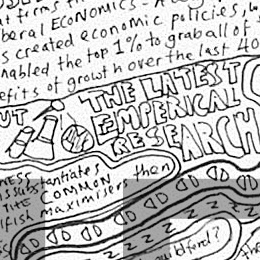 at firms
beral ECONOMICS -
s created economic policies,
nabled the top 1% to grab all of
efits of growth over the last 40
UT THE LATEST
EMPERICAL
RESEARCH
NESS
issubstantiates
THE COMMON then
lfish maximisers
DDDDDD
zzzzzz
would ford?
the